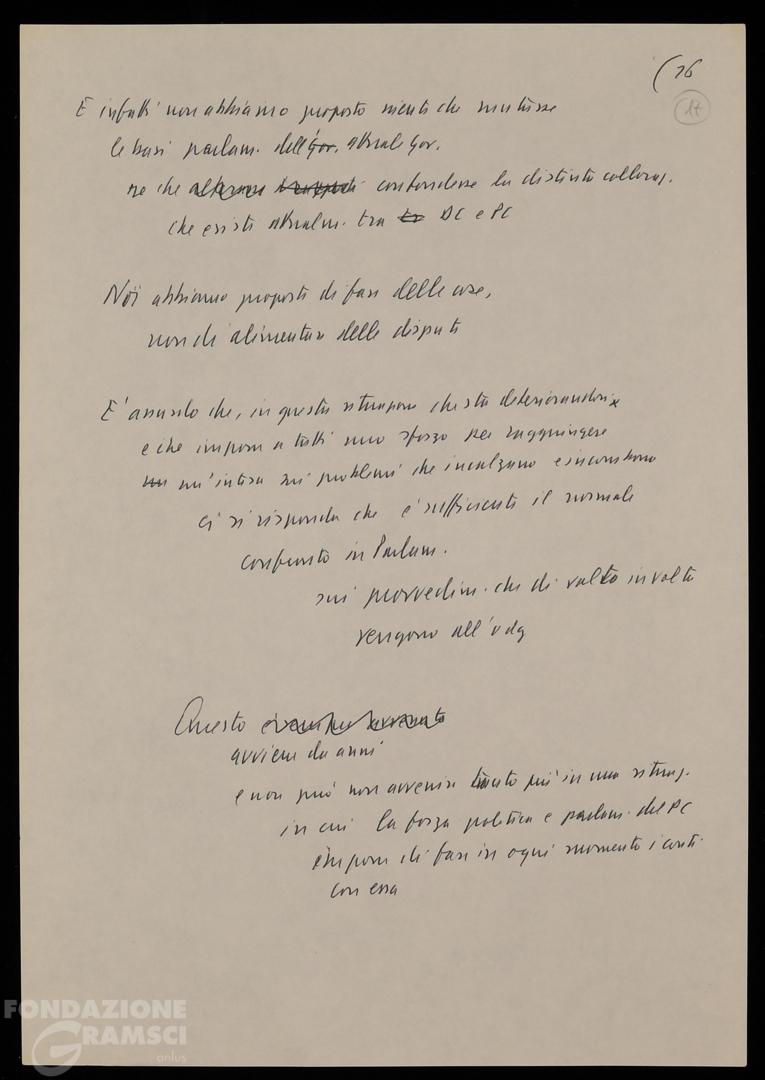 (16
17
E infatti non abbiamo proposto niente che mutasse
le basi parlam. dell'gov. attuale gov.
ne che confondesse la distinta collocaz.
che esiste attualm. tra DC e PC
Noi abbiamo proposto di fare delle cose,
non di alimentare delle dispute
E' assurdo che, in questa situazione che sta deteriorandosi
e che impone a tutti uno sforzo per raggiungere
un un'intesa sui problemi che incalzano e incombono
ci si risponda che è sufficiente il normale
confronto in Parlam.
sui provvedim. che di volta in volta
vengono all'odg
Questo è sempre avvenuto
avviene da anni
e non può non avvenire tanto più in una situaz.
in cui la forza politica e parlam. del PC
impone di fare in ogni momento i conti
con essa
FONDAZIONE
GRAMSCI
onlus